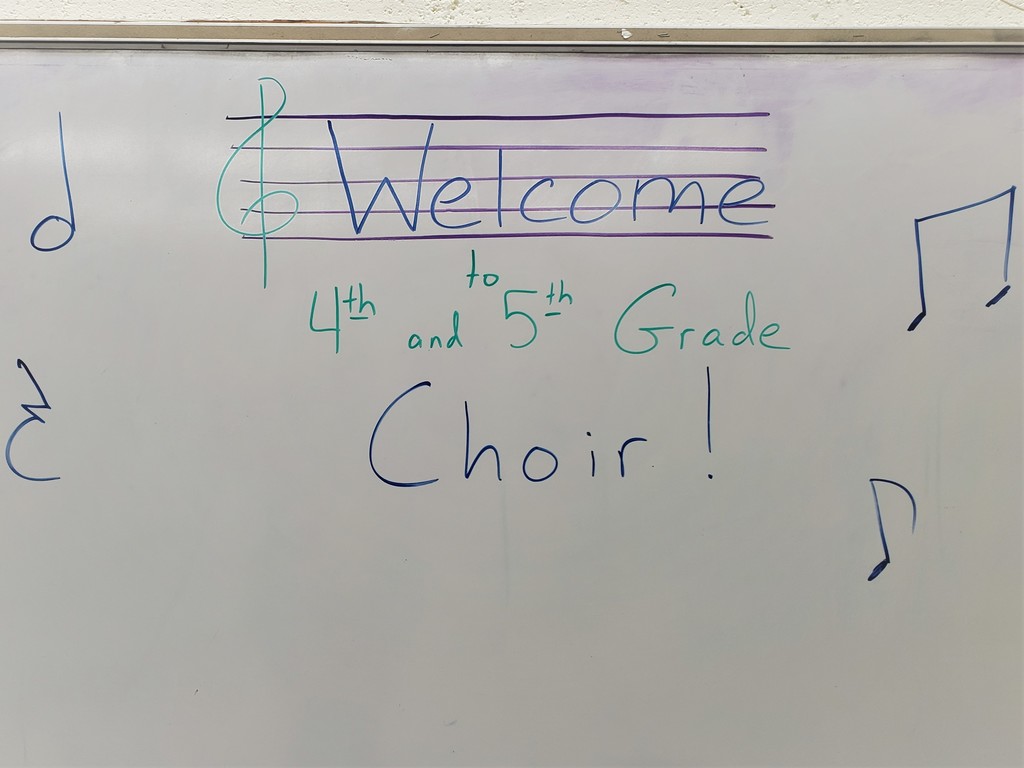 Welcome
to
4th and 5th Grade
Choir!